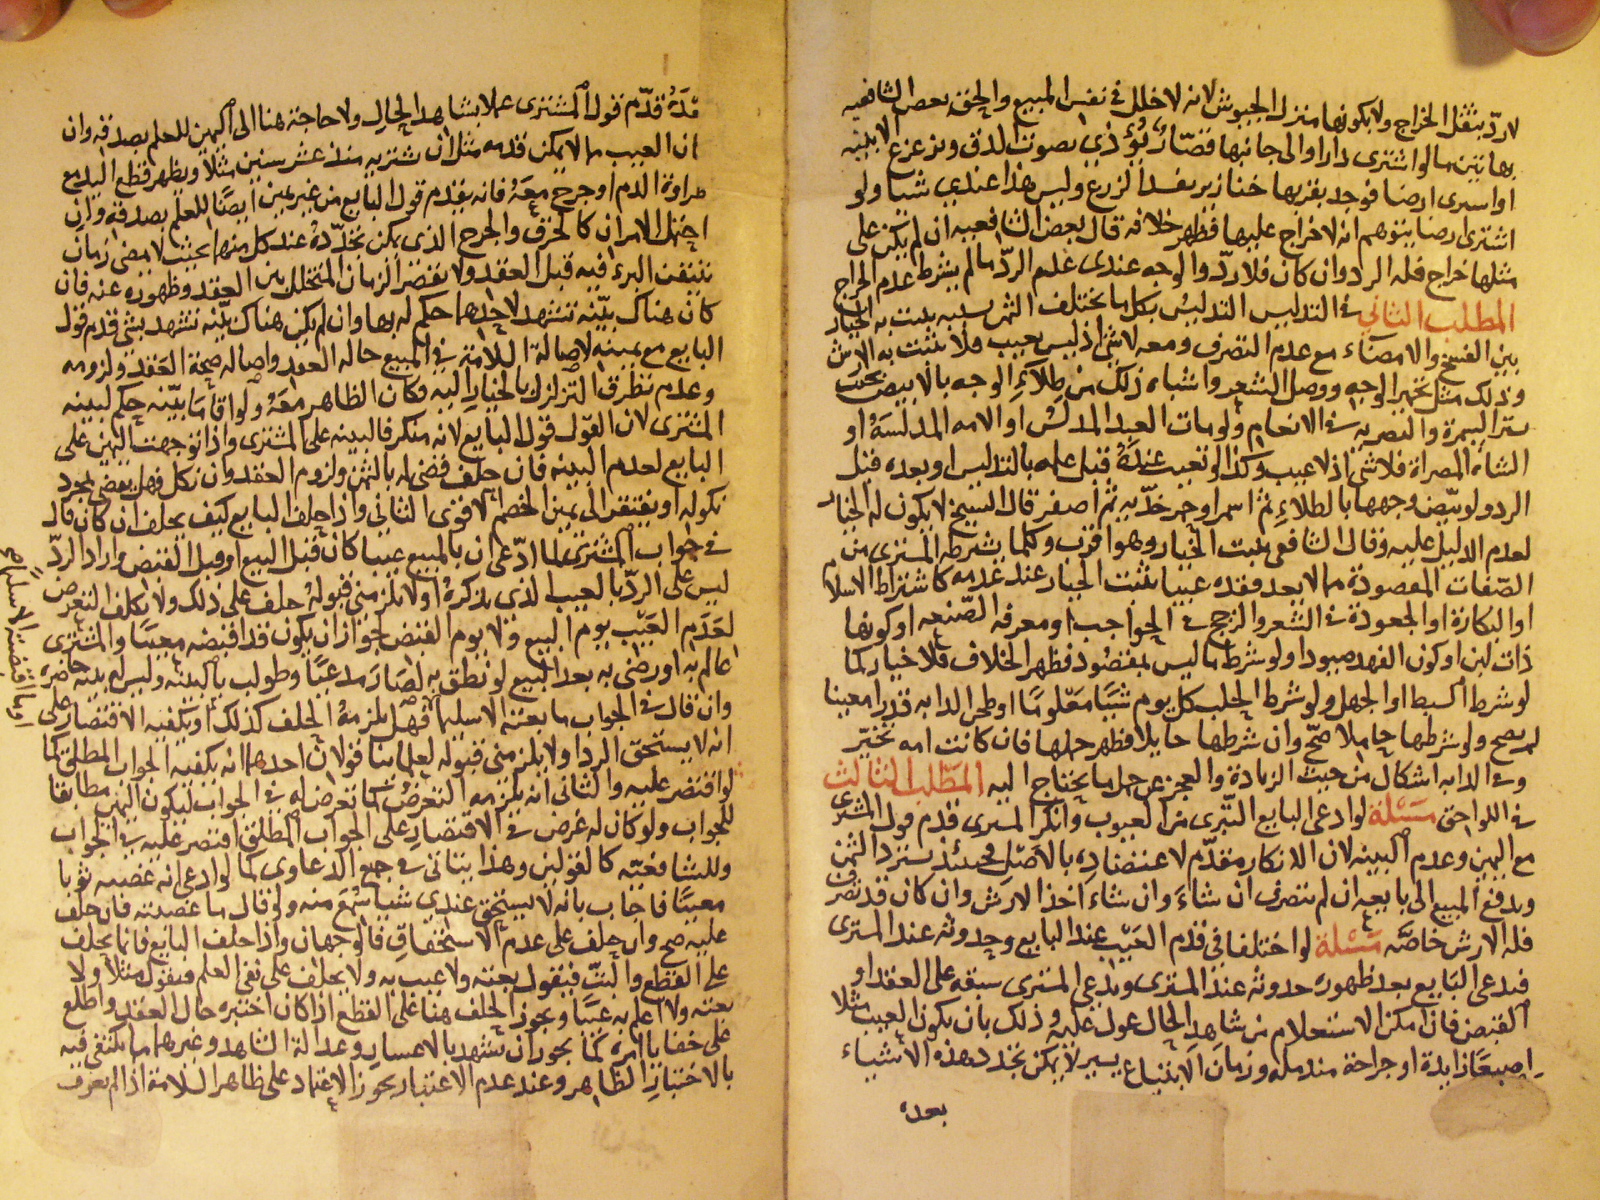 لا ردّ بثقل الخراج ولا بكونها منزل الجيوش لانه لا خلل في نفس المبيع والحق بعض الشافعيه
بهاتين ما لو اشترى دارا والى جانبها قصّارٌ يُؤذي بصوت الدق ويزعزع الابنيه
او اشترى ارضا فوجد بقربها خنازير يفسد الزرع وليس هذا عندي شيا ولو
اشترى ارضا يتوهم انه لا خراج عليها فظهر خلافه قال بعض الشافعيه ان لم يكن على
مثلها خراج فله الرد وان كان فلا ردّ والوجه عندي عدم الردّ ما لم يشرط عدم الخراج
المطلب الثاني في التدليس التدليس بكل ما يختلف الثمن بسببه يثبت به الخيار
بين الفسخ والامضاء مع عدم التصرف ومعه لا شئ اذ ليس بعيب فلا يثبت به الارش
وذلك مثل تحمير الوجه ووصل الشعر واشباه ذلك من طلاءِ الوجه بالابيض تحت
ستر السمرة والتصريه في الانعام ولو مات العبد المدلس او الامه المدلسَةُ او
الشاه المصراة فلا شئ اذ لا عيب وكذا لو تعيب عندَهُ قبل علمه بالتدليس او بعده قبل
الرد ولو بيّض وجهها بالطلاءِ ثم اسمر او حمر خدّيه ثم اصفر قال الشيخ لا يكون له الخيار
لعدم الدليل عليه وقال الشافعي يثبت الخيار وهو اقرب وكلما يشرطه المشترى من
الصّفات المقصودة مما لا يعد فقده عيبا يثبت الخيار عند عدمه كاشتراط الاسلام
او البكارة او الجعودة في الشعر والزجج في الحواجب او معرفه الصّنعه او كونها
ذات لبن او كون الفهد صيودا ولو شرط ما ليس بمقصُود فظهر الخلاف فلا خيار كما
لو شرط السبط او الجهل ولو شرط الحلب كل يوم شيَا معَلومًا او طحن الدابه قدرا معينا
لم يصح ولو شرطها حاملا صحّ وان شرطها حايلا فظهر حملها فان كانت امه تخيّر
وفي الدابه اشكال من حيث الزيادة والعجز عن حمل ما يحتاج اليه المَطلب الثالث
في اللواحق مسَئلة لو ادعى البايع التبّرى من العيوب وانكر المشترى قدم قول المشترى
مع اليمين وعدم البينه لان الانكار مقدّم لاعتضاده بالاصل فحينئذ يسترد الثمن
ويدفع المبيع الى بايعه ان لم يتصرف ان شاءَ وان شاء اخذ الارش وان كان قد تصرف
فله الارش خاصّه مَسَئلة لو اختلفا في قدم العيب عند البايع وحدوثه عند المشترى
فيدعى البايع بعد ظهوره حدوثه عند المشترى ويدعى المشترى سبقه على العقد او
القبض فان امكن الاستعلام من شاهد الحال عول عليه وذلك بان يكون العيب مثلا
اصبعًا زايدة او جراحة مندمله وزمان الابتياع يسير لا يمكن تجدد هذه الاشياء
بعده
قدَمُه قدّم قول المشترى عملا بشاهد الحال ولا حاجة هنا الى اليمين للعلم بصدقه وان
ان العيب مما لا يمكن قدمه مثل ان يشتريه منذ عشر سنين مثلا ويظهر قطع اليد مع
طراوة الدم او جرح معَهُ فانه يقدم قول البايع من غير يمين ايضًا للعلم بصدقه وان
احتمل الامران كالخرق والجرح الذي يمكن تجدّدهُ عند كل منهما بحيث لا مضى زمان
يتيقن البرءُ فيه قبل العقد ولا يقصر الزمان المتخلل بين العقد وظهوره عنه فان
كان هناك بيّنه تشهد لاحدهما حكم له بها وان لم يكن هناك بيّنه تشهد بشئ قدم قول
البايع مع يمينه لاصالة السلامة في المبيع حاله العقد واصاله صحة العَقد ولزومه
وعدم تطرق التزلزل بالخيار اليه فكان الظاهر معَهُ ولو اقاما بيّنه حكم لبينه
المشترى لان القول قول البايع لانه منكر فالبينه على المشترى واذا توجهت اليمين على
البايع لعدم البينه فان حلف قضى له بالثمن ولزوم العقد وان نكل فهل يقضى بمجرد
نكوله او يفتقر الى يمين الخصم الاقوى الثاني واذا حلف البايع كيف يحلف ان كان قال
في جواب المشترى لما ادّعى ان بالمبيع عيبا كان قبل البيع او قبل القبض واراد الردّ
ليس على الردّ بالعيب الذي يذكرهُ او لا يلزمني قبولهُ حلف على ذلك ولا يكلف التعرض
لعَدَم العَيب يوم البيع ولا يوم القبض لجواز ان يكون قد اقبضه معيبًا والمشترى
عالم به او رضى به بعد البيع لو نطق به لصَارَ مدعيًا وطولب بالبينه وليس له بينه حاضره
وان قال في الجواب ما بعته الا سليما فهل يلزمهُ الحلف كذلك او يكفيه الاقتصار على
انه لا يستحق الرد او لا يلزمنى قبوله لعلمائنا قولان احدهما انه يكفيه الجواب المطلق كما
لو اقتصر عليه والثاني انه يلزمه التعرضُ لما تعرض له في الجواب ليكون اليمين مطابقا
للجواب ولو كان له غرض في الاقتصار على الجواب المطلق اقتصر عليه في الجواب
وللشافعيّه كالقولين وهذا يتاتى في جميع الدعاوى كما لو ادعى انه غصبه ثوبا
معينًا فاجاب بانه لا يستحق عندي شيا سُمع منه ولو قال ما غصبته فان حلف
عليه صح وان حلف على عدم الاستحقاق فالوجهان واذا حلف البايع فانما يحلف
على القطع والبتّ فيقول بعته ولا عيب به ولا يحلف على نفى العلم فيقول مثلا ولا
بعته ولا اعلم به عيبًا ويجوز الحلف هنا على القطع اذا كان اختبره حال العقد واطلع
على خفايا امره كما يجوز ان يشهد بالاعسار وعدالة الشاهد وغيرهما مما يكتفى فيه
بالاختبار الظاهر وعند عدم الاعتبار يجوز الاعتماد على ظاهر السلامة اذا لم يعرف
او ما اقبضته الا سليمًا صح